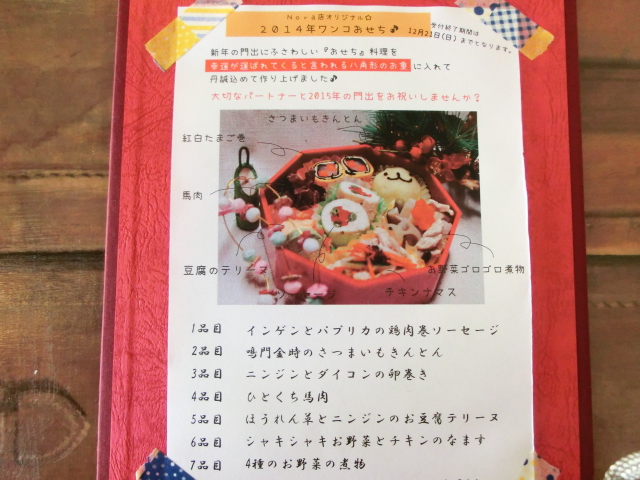 Nova店オリジナル☆
2014年ワンコおせち♪
受付終了期間は
12月21日(日)までとなります。
新年の門出にふさわしい『おせち』料理を
幸運が運ばれてくると言われる八角形のお重に入れて
丹誠込めて作り上げました♪
大切なパートナーと2015年の門出をお祝いしませんか？
さつまいもきんとん
紅白たまご巻
馬肉
豆腐のテリーヌ
お野菜ゴロゴロ煮物
ソーセージ
チキンナマス
1品目 インゲンとパプリカの鶏肉巻ソーセージ
2品目 鳴門金時のさつまいもきんとん
3品目 ニンジンとダイコンの卵巻き
4品目 ひとくち馬肉
5品目 ほうれん草とニンジンのお豆腐テリーヌ
6品目 シャキシャキお野菜とチキンのなます
7品目 4種のお野菜の煮物